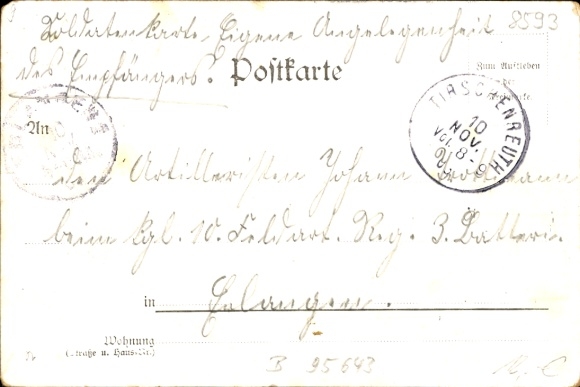 Soldatenkarte. Eigene Angelegenheit
des Empfängers.
8593
Postkarte
Zum Aufkleben
der
An
TIRSCHENREUTH
10
NOV.
VOr. 8-9
den Artilleristen Johann
beim kgl. 10. Feldart. Reg. 3. Batterie.
in Erlangen.
Wohnung
(Straße u. Haus-Nr.)
B 95643